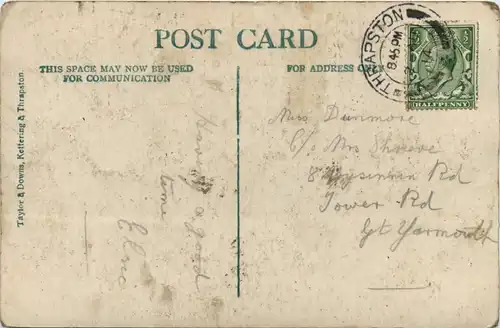 POST CARD
THIS SPACE MAY NOW BE USED
FOR COMMUNICATION
FOR ADDRESS ONLY
Taylor & Downs, Kettering & Thrapston.
THRAPSTON
8.45 PM
HALFPENNY
Having a good
time
Elsie
Miss Dunmore
C/o Mrs Shreeve
8 Rd
Tower Rd
Gt Yarmouth